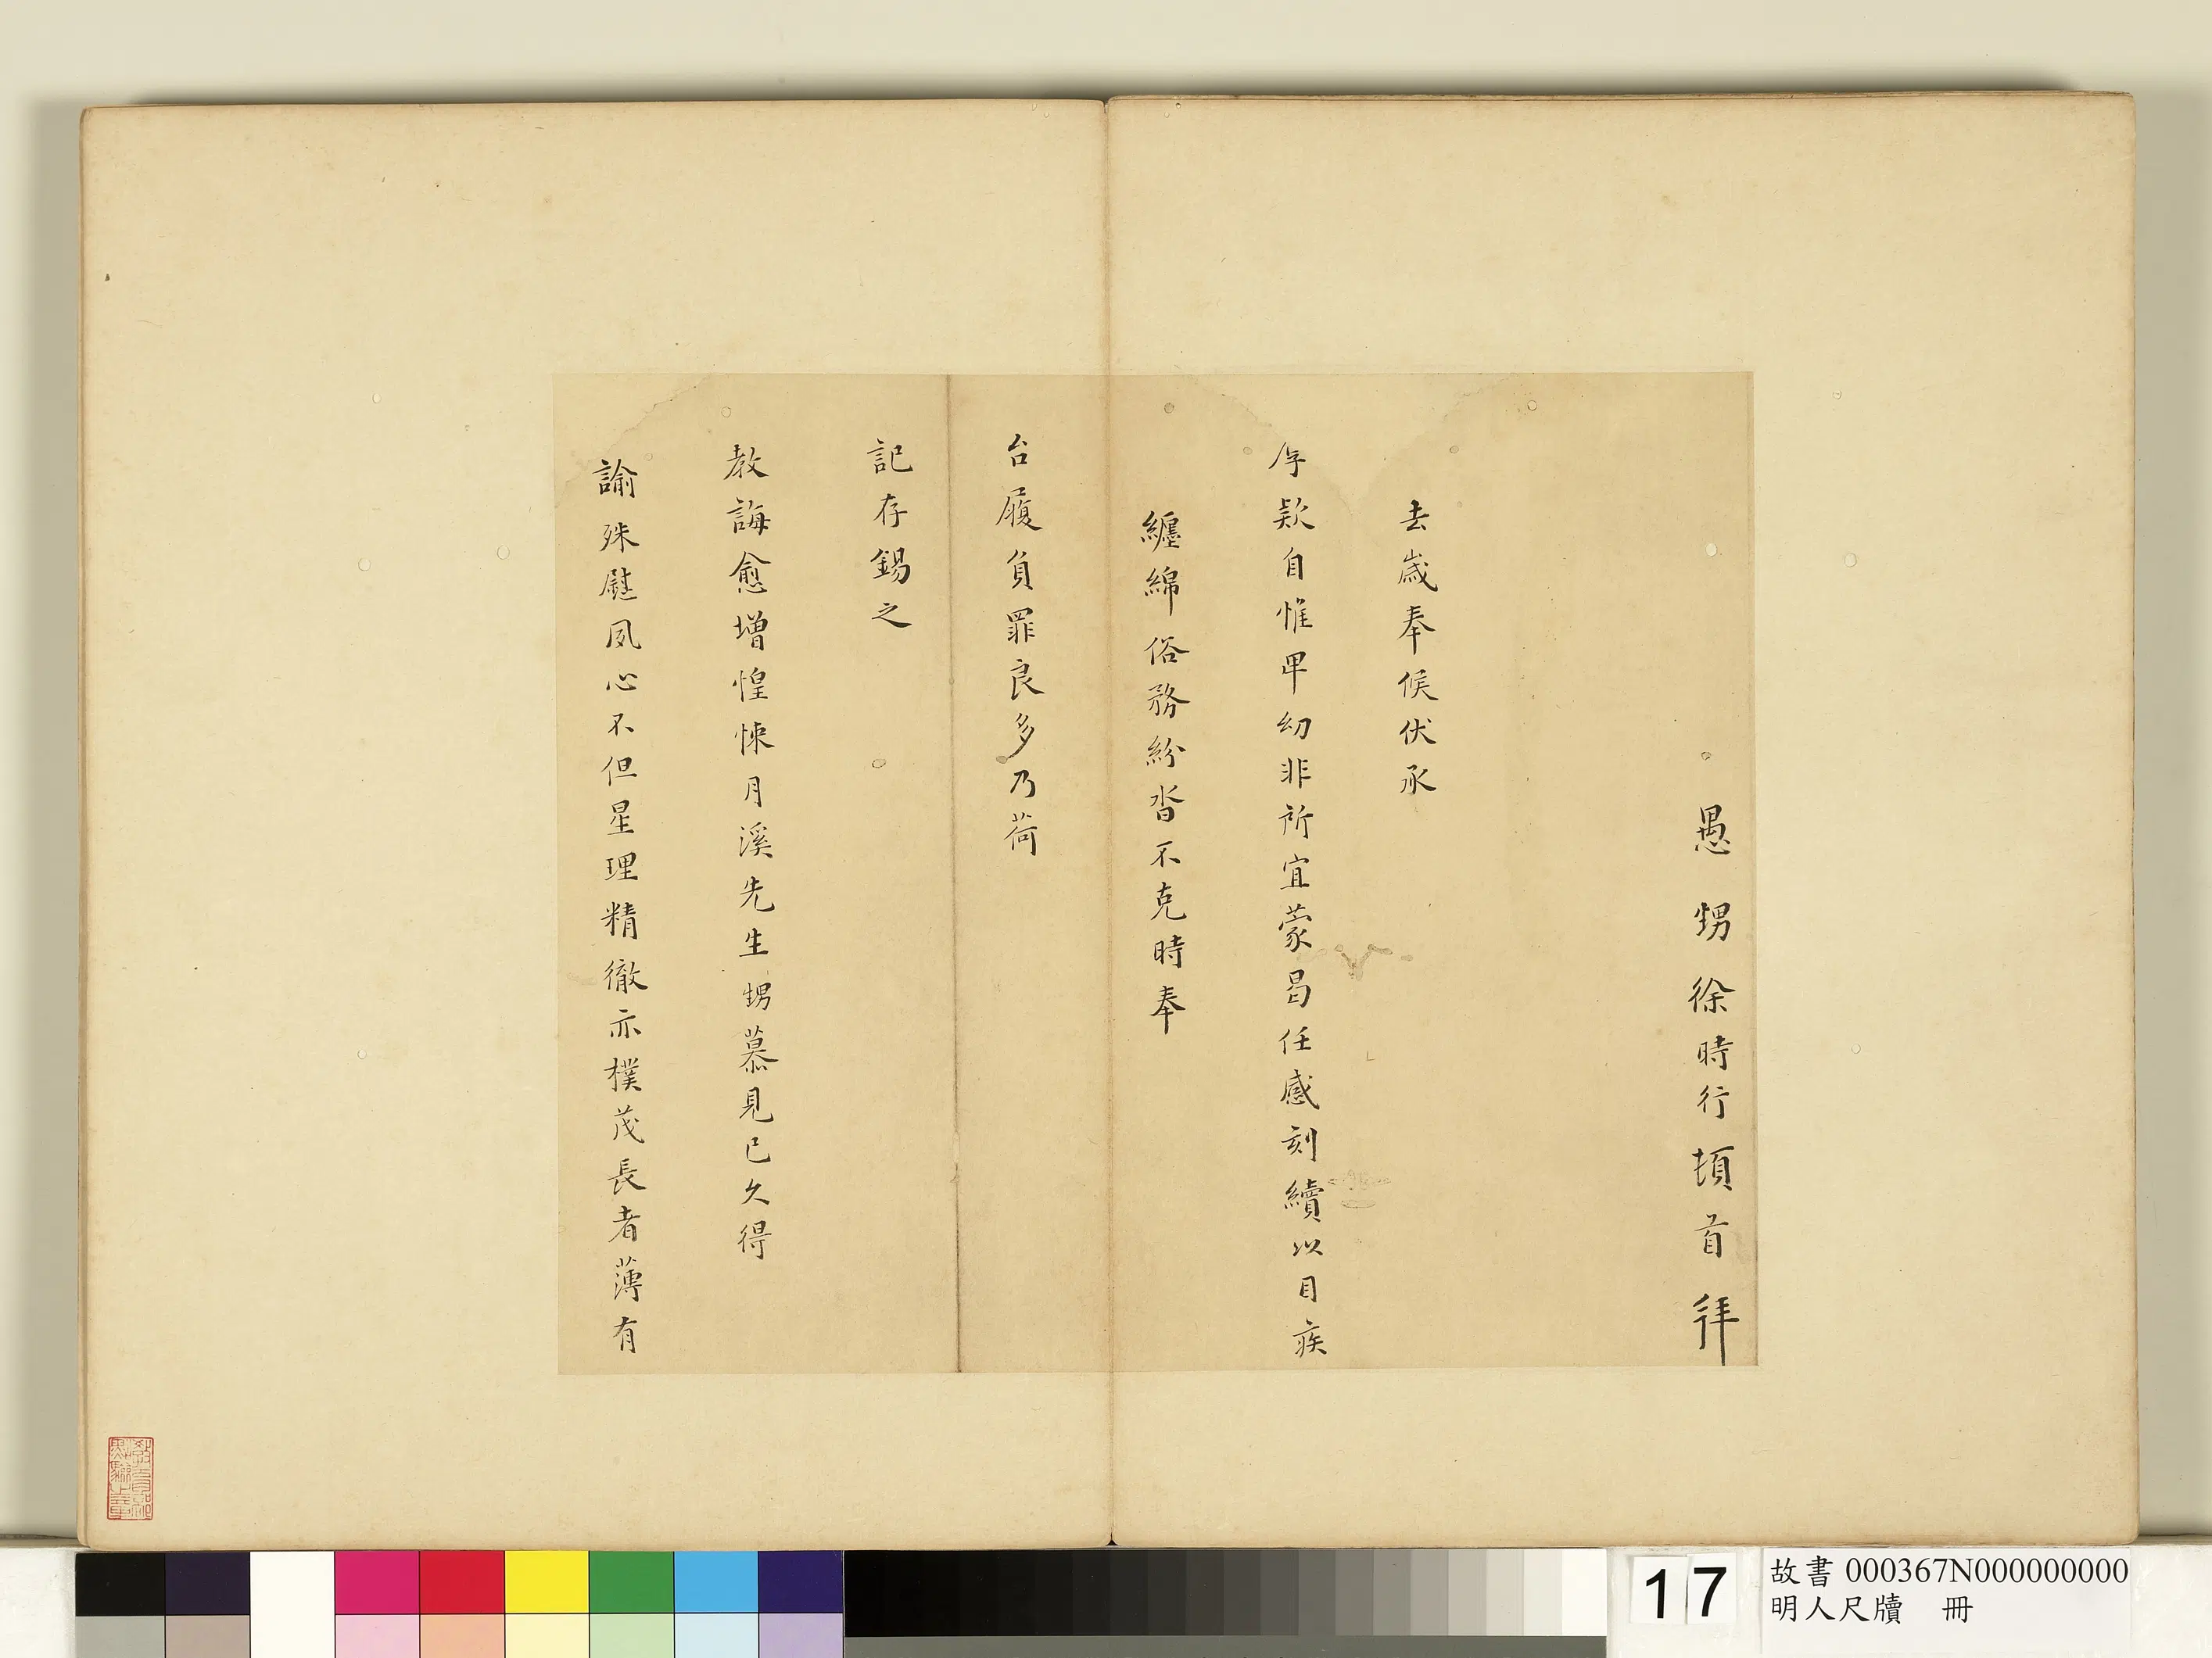 愚甥徐時行頓首拜
去歲奉候伏承
存欵自惟卑幼非所宜蒙曷任感刻續以目疾
纏綿俗務紛沓不克時奉
台履負罪良多乃荷
記存錫之
教誨愈增惶悚月溪先生甥慕見已久得
諭殊慰夙心不但星理精徹亦樸茂長者薄有
17
故書 000367N000000000
明人尺牘 冊